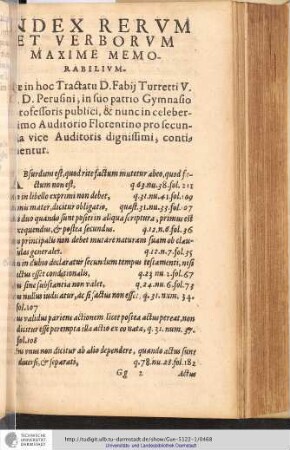 NDEX RERVM
ET VERBORVM
MAXIME MEMO-
RABILIVM.
in hoc Tractatu D. Fabij Turretti V.
D. Perusini, in suo patrio Gymnasio
rofessoris publici, & nunc in celeber-
imo Auditorio Florentino pro secun-
a vice Auditoris dignissimi, conti
nentur.
Bsurdum est, quod rite factum mutetur ab eo, quod f-
ctum non est, q 63.nu.38.fol.211
in libello exprimi non debet, q.31.nu.41.fol.109
mater, dicitur obligatio, quæst.31.nu.33.fol.107
duo quando sunt posita in aliqua scriptura, primus est
equendus, & postea secundus. q.12.n.8.fol.36
principalis non debet mutare naturam suam ob clau-
sulas generales. q.12.nu.11.fol.35
in dubio declaratur secundum tempus testamenti, nisi
ctus esset condictionalis. q.23 nu.2.fol.67
sine substantia non valet, q.24.nu.6.fol.73
nullius iudicatur, ac si factus non esset. q.31.num.34.
fol.107
validus pariens actionem licet postea actus pereat, non
dicitur esse perempta illa actio ex eo orta, q.31.num.37.
fol.108
unus non dicitur ab alio dependere, quando actus sunt
diuersi, & separati, q.78.nu.28.fol.182
Gg 2 Actus
TECHNISCHE
UNIVERSITÄT
DARMSTADT
http://tudigit.ulb.tu-darmstadt.de/show/Gue-3122-1/0468
Universitäts- und Landesbibliothek Darmstadt